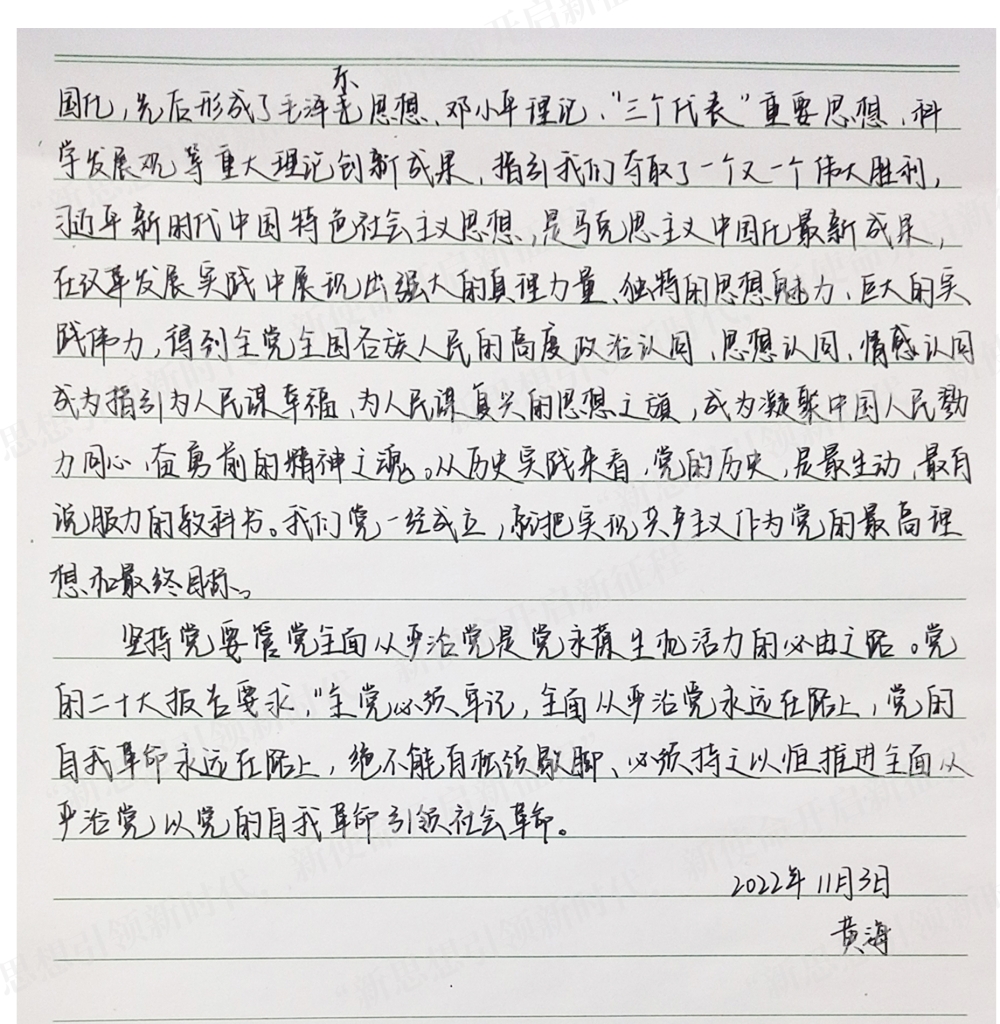 东
国化，先后形成了毛泽东思想、邓小平理论、“三个代表”重要思想、科
学发展观等重大理论创新成果，指引我们夺取了一个又一个伟大胜利，
习近平新时代中国特色社会主义思想，是马克思主义中国化最新成果，
在改革发展实践中展现出强大的真理力量、独特的思想魅力、巨大的实
践伟力，得到全党全国各族人民的高度政治认同、思想认同、情感认同
成为指引为人民谋幸福、为人民谋复兴的思想之旗，成为凝聚中国人民勠
力同心、奋勇前的精神之魂。从历史实践来看，党的历史，是最生动、最有
说服力的教科书。我们党一经成立，就把实现共产主义作为党的最高理
想和最终目标。
坚持党要管党全面从严治党是党永葆生机活力的必由之路。党
的二十大报告要求，“全党必须牢记，全面从严治党永远在路上，党的
自我革命永远在路上，绝不能有松须歇脚、必须持之以恒推进全面从
严治党，以党的自我革命引领社会革命。
2022年11月3日
黄海
新思想引领新时代，新使命开启新征程